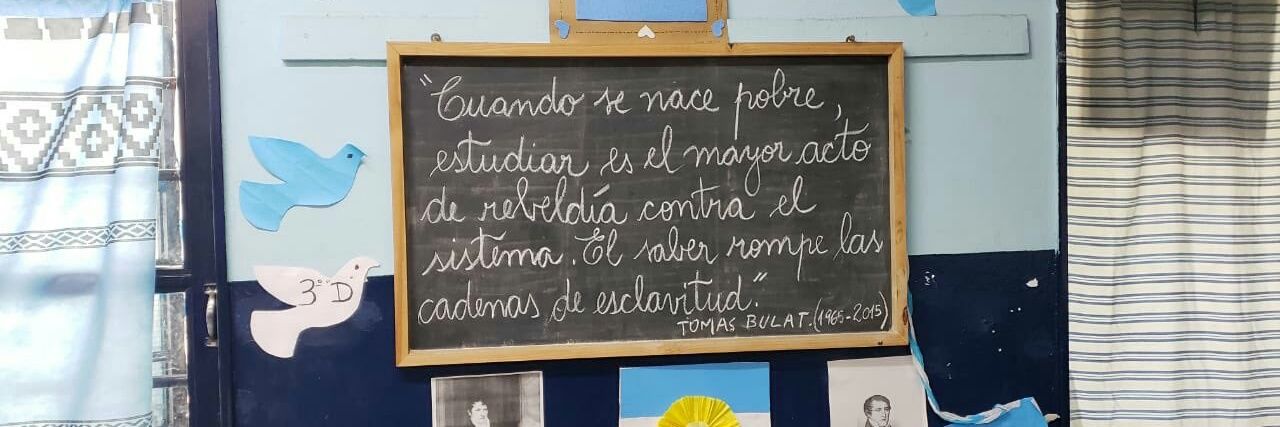 "Cuando se nace pobre,
estudiar es el mayor acto
de rebeldía contra el
sistema. El saber rompe las
cadenas de esclavitud."
TOMAS BULAT. (1965-2015)
3° D